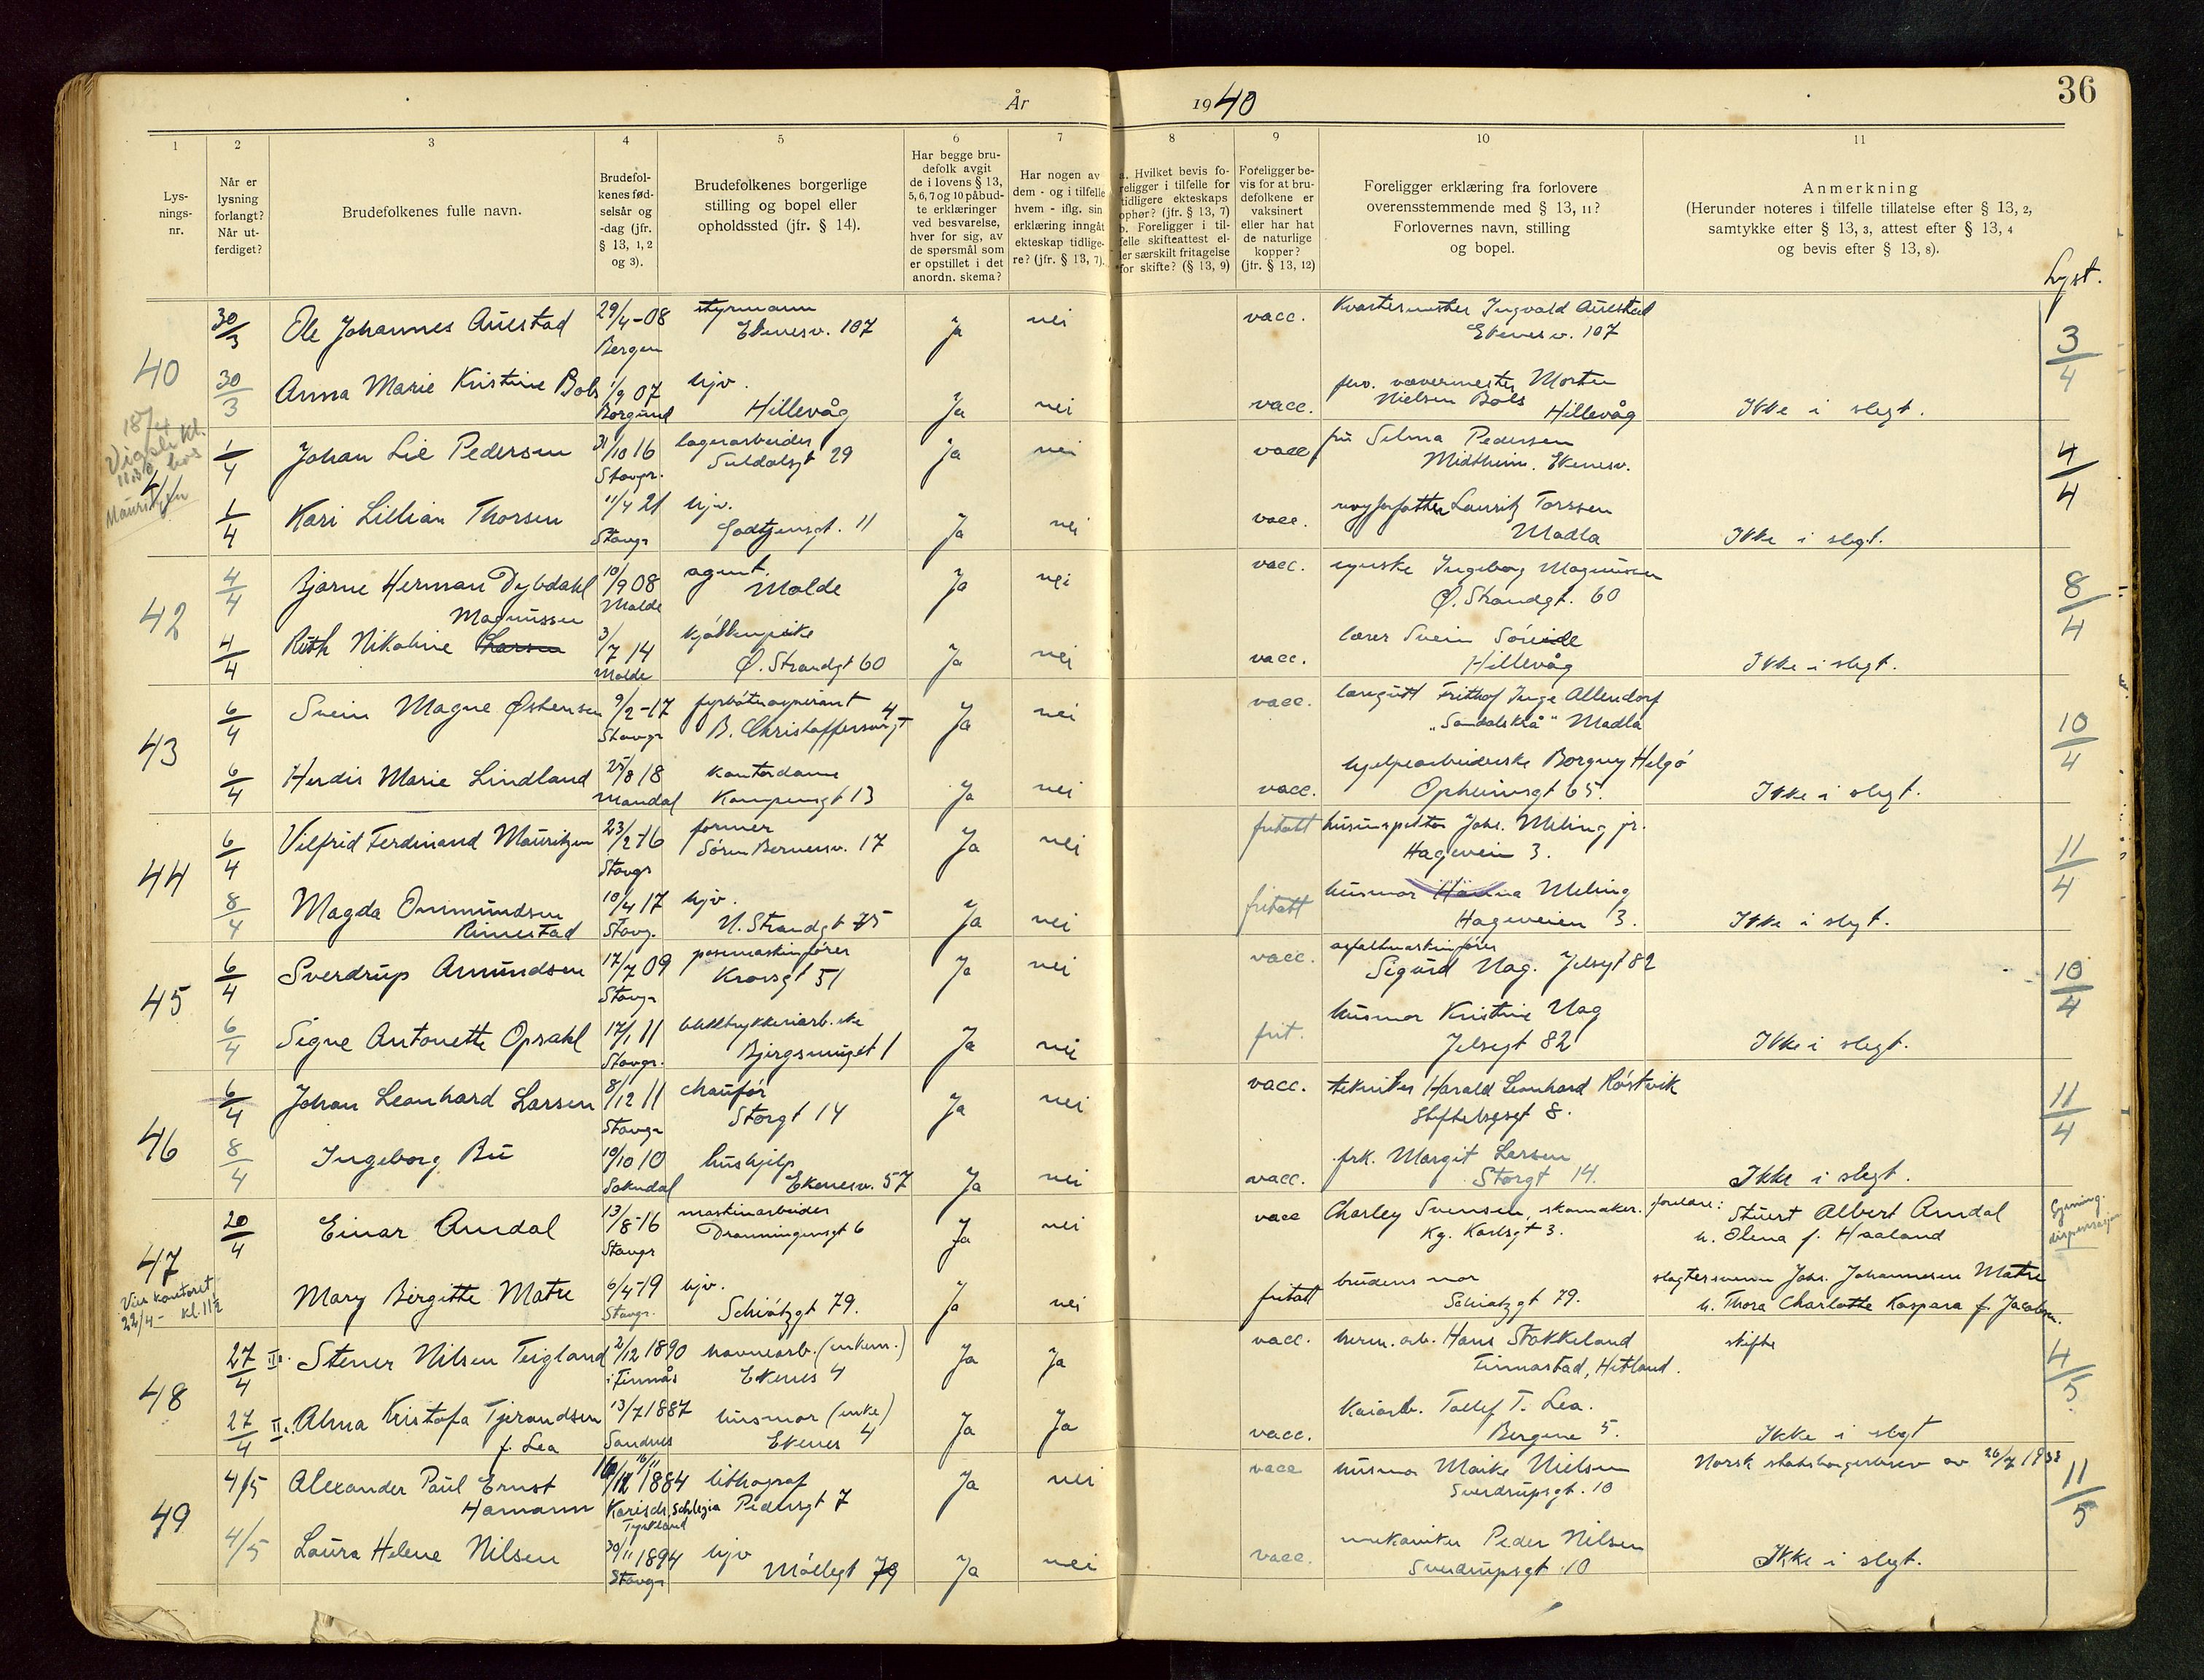 År 1940
36
1
2
3
4
5
6
7
8
9
10
11
Lys-
nings-
nr.
Når er
lysning
forlangt?
Når ut-
ferdiget?
Brudefolkenes fulle navn.
Brudefol-
kenes fød-
selsår og
-dag (jfr.
§ 13, 1, 2
og 3).
Brudefolkenes borgerlige
stilling og bopel eller
opholdssted (jfr. § 14).
Har begge bru-
defolk avgit
de i lovens § 13,
5, 6, 7 og 10 påbud-
te erklæringer
ved besvarelse,
hver for sig, av
de spørsmål som
er opstillet i det
anordn. skema?
Har nogen av
dem - og i tilfelle
hvem - iflg. sin
erklæring inngåt
ekteskap tidlige-
re? (jfr. § 13, 7).
a. Hvilket bevis fo-
religger i tilfelle for
tidligere ekteskaps
ophør? (jfr. § 13, 7)
b. Foreligger i til-
felle skifteattest el-
ler særskilt fritagelse
for skifte? (§ 13, 9)
Foreligger be-
vis for at bru-
defolkene er
vaksinert
eller har hat
de naturlige
kopper?
(jfr. § 13, 12)
Foreligger erklæring fra forlovere
overensstemmende med § 13, 11?
Forlovernes navn, stilling
og bopel.
Anmerkning
(Herunder noteres i tilfelle tillatelse efter § 13, 2,
samtykke efter § 13, 3, attest efter § 13, 4
og bevis efter § 13, 8).
Lyst.
40
30/3 Ole Johannes Auestad 29/4-08 styrmann Ja nei vacc. Kvartermester Ingvald Auestad 3/4
Bergen Ekenesv. 107 Ekenesv. 107
30/3 Anna Marie Kristine Bols 1/9 07 hjv. Ja nei vacc. Morten
Borgund Hillevåg Nielsen Bols Hillevåg Ikke i slegt.
18/4
Mauritzen
1/4 Johan Lie Pedersen 31/10 16 lagerarbeider Ja nei vacc fru Selma Pedersen 4/4
Stavgr. Suldalsgt 29 Midtheim. Ekenesv.
1/4 Kari Lillian Thorsen 11/4 21 hjv. Ja nei vacc. Lauritz Torssen
Stavgr 11 Madla Ikke i slegt.
42
4/4 Bjarne Herman Dybdahl 10/9 08 agent. Ja nei vacc. Ingeborg Magnussen 8/4
Magnussen Molde Molde Ø. Strandgt. 60
4/4 Ruth Nikoline Larsen 3/7 14 kjøkkenpike Ja nei vacc. lærer Svein Söreide
Molde Ø. Strandgt 60 Hillevåg Ikke i slegt.
43
6/4 Svein Magne Østensen 9/2-17 Ja nei vacc. læregutt Frithof Inge Allendorf 10/4
Stavgr B. Christoffersensgt 4 Madla
6/4 Herdis Marie Lindland 25/8 18 kontordame Ja nei vacc. hjelpearbeiderske Borgny Helgö
Mandal Kampensgt 13 Opheimsgt 65. Ikke i slegt.
44
6/4 Vilfrid Ferdinand Mauritzen 23/2-16 former Ja nei fritatt Johs. Meling jr. 11/4
Stavgr Sören Bernersv. 17 Hagevein 3.
8/4 Magda Ommundsen 10/4 17 hjv. Ja nei fritatt husmor Hanna Meling
Rimestad Stavg. N. Strandgt 75 Hageveien 3. Ikke i slegt.
45
6/4 Sverdrup Amundsen 17/7 09 posemaskinfører Ja nei vacc. asfaltmaskinfører 10/4
Stavgr Kroosgt 51 Sigurd Nag. Jelsgt 82
6/4 Signe Antonette Opsahl 17/1 11 blikktrykkeriarb.ske Ja nei frit. husmor Kristine Nag
Stavgr. Bjergsmuget 1 Jelsegt 82 Ikke i slegt.
46
6/4 Johan Leonhard Larsen 8/12 11 chauför Ja nei vacc. tekniker Harald Leonhard Röstvik 11/4
Stavgr Storgt 14 Stiftelsesgt 8.
8/4 Ingeborg Bu 19/10 10 hushjelp Ja nei vacc. frk. Margit Larsen
Sokndal Ekenesv. 57 Storgt 14. Ikke i slegt.
47
20/4 Einar Amdal 13/8-16 maskinarbeider Ja nei vacc Charley Svensen, skomaker. forelare: Stuert Albert Amdal
Stavgr Dronningensgt 6 Kg. Karlsgt 3. h. Olena f. Haaland
dispensasjon
Vies kontoret
22/4 - kl. 11½
Mary Birgitte Matre 6/4-19 hjv. Ja nei fritatt brudens mor slagtersvenn Johs. Johannesen Matre
Stavgr. Schiøtzgt 79. Schiøtzgt 79. h. Thora Charlotte Kaspara f. Jacobsen.
48
27/4 II. Stener Nilsen Teigland 2/12 1890 havnearb. (enkem.) Ja Ja vacc. herm. arb. Hans Stokkeland skifte 4/5
i Finnås Ekenes 4 Finnastad, Hetland.
27/4 II. Alma Kristofa Tjerandsen 13/7 1887 husmor (enke) Ja Ja vacc. Kaiarb. Tollef T. Lea.
f. Lea Sandnes Ekenes 4 Bergene 5. Ikke i slegt
49
4/5 Alexander Paul Ernst 1884 lithograf Ja nei vacc husmor Maike Nielsen Norsk statsborgerbrev av 26/7 1938 11/5
Hamann Schlezia Pedersgt 7 Sverdrupsgt. 10
Tyskland
4/5 Laura Helene Nilsen 30/11 1894 hjv Ja nei vacc. mekaniker Peder Nilsen
Stavgr Möllegt 79 Sverdrupsgt 10 Ikke i slegt.